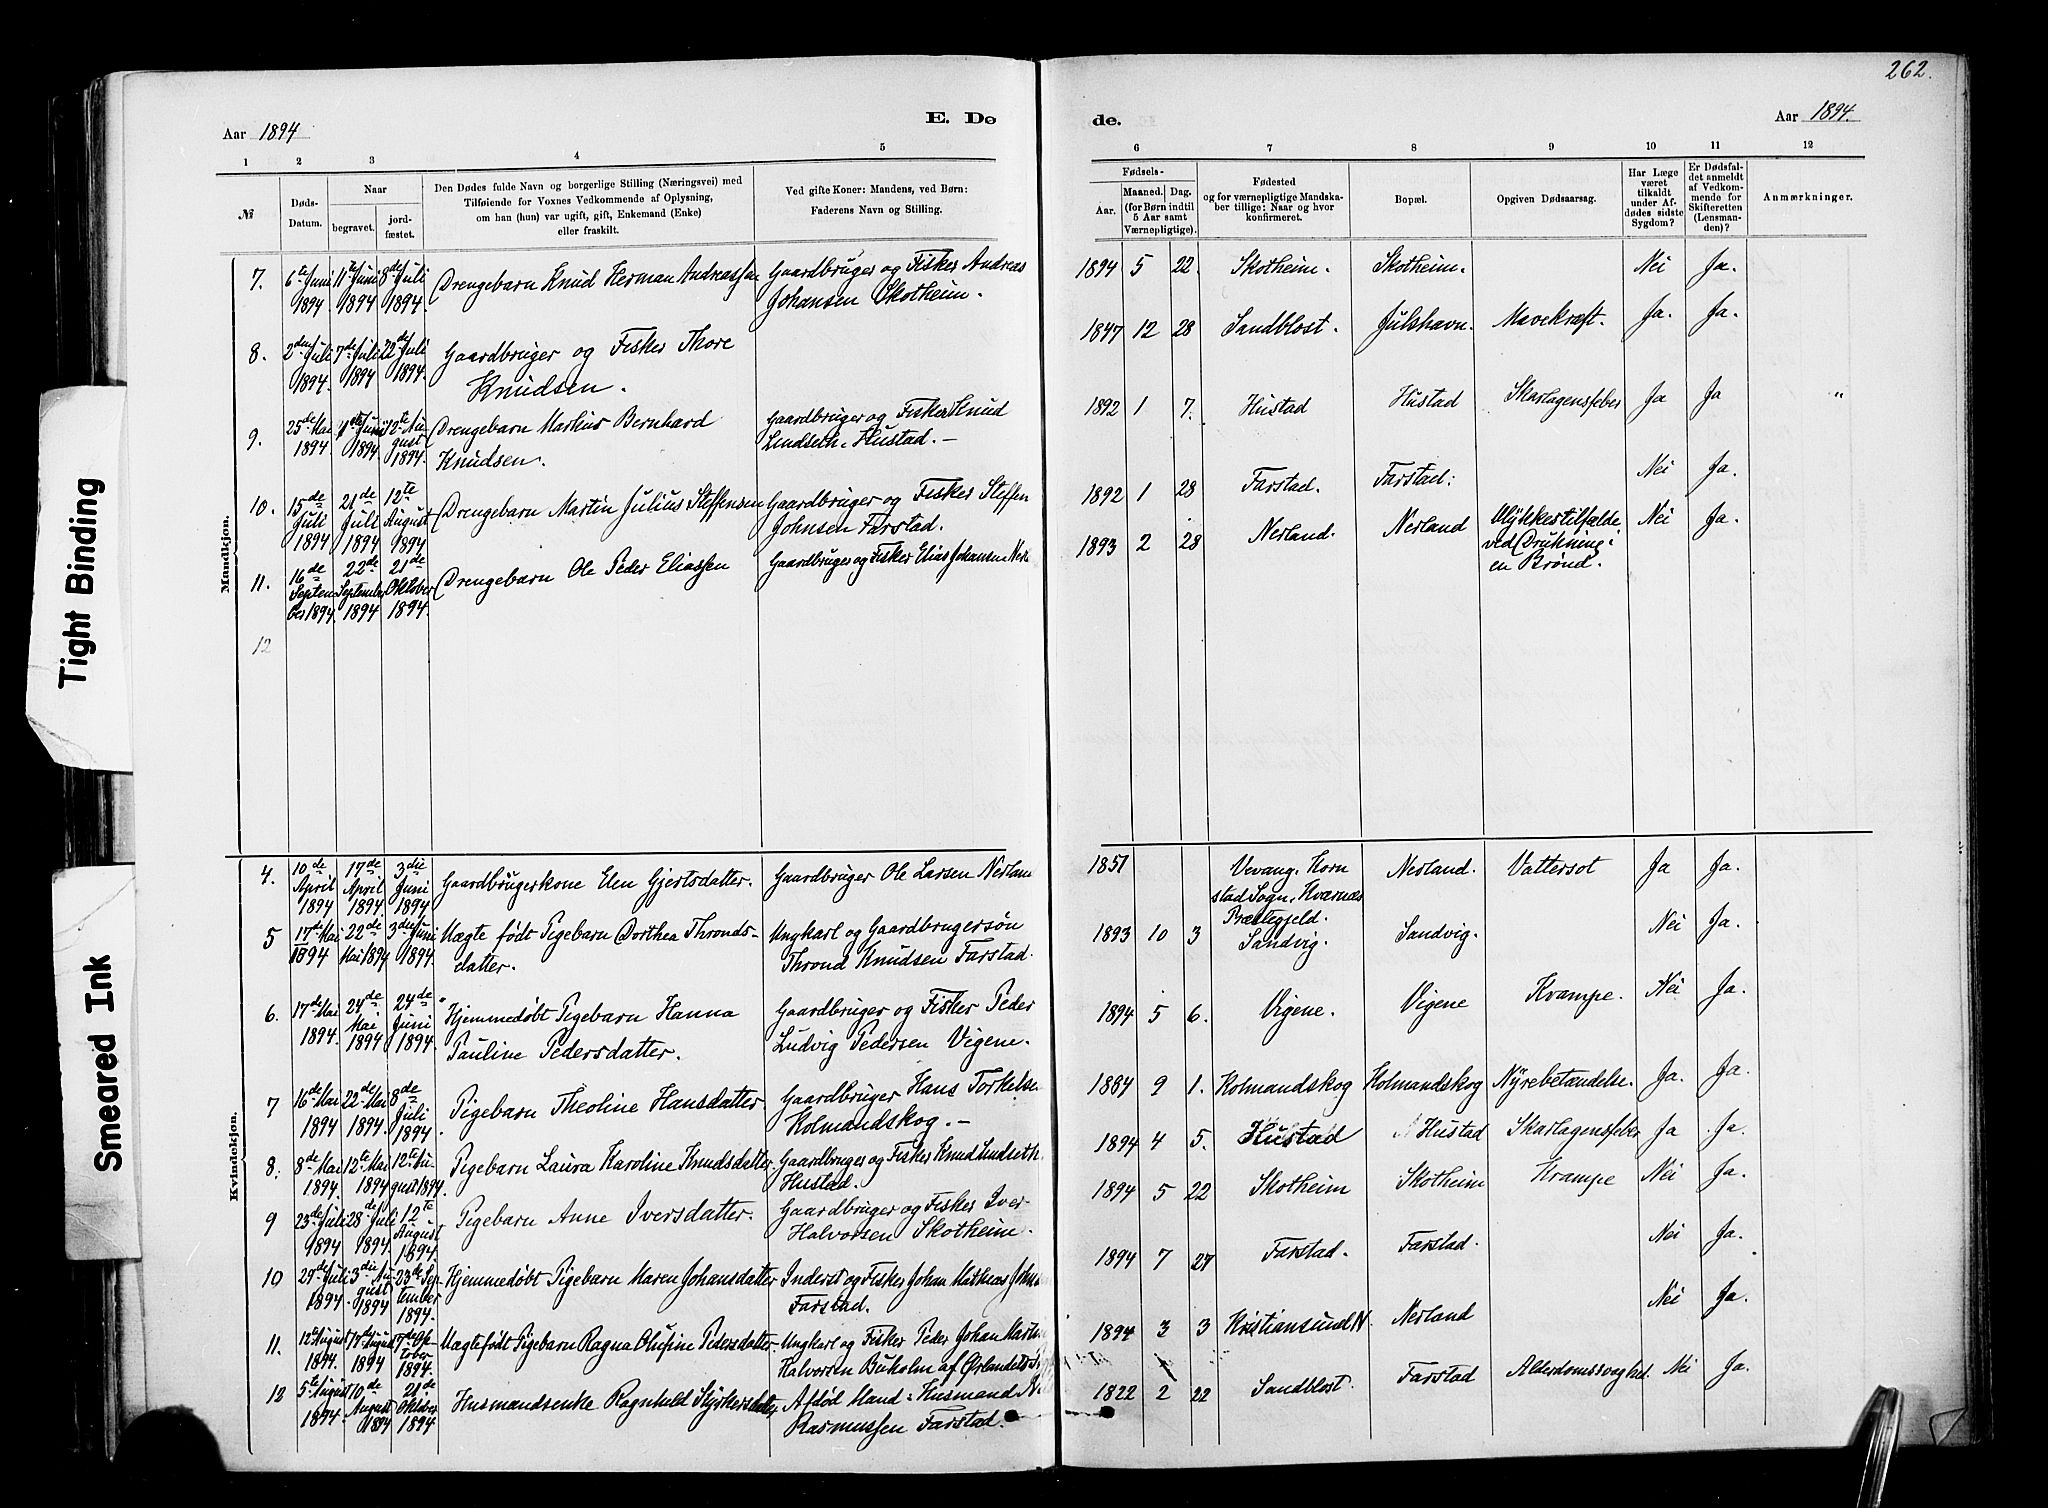 262.
Aar 1894
E. Dø
de.
Aar 1894.
1 2 3 4 5
6 7 8 9 10 11 12
№
Døds-
Datum.
Naar
begravet.
jord-
fæstet.
Den Dødes fulde Navn og borgerlige Stilling (Næringsvei) med
Tilføiende for Voxnes Vedkommende af Oplysning,
om han (hun) var ugift, gift, Enkemand (Enke)
eller fraskilt.
Ved gifte Koner: Mandens, ved Børn:
Faderens Navn og Stilling.
Fødsels-
Aar.
Maaned.
Dag.
(for Børn indtil
5 Aar samt
Værnepligtige).
Fødested
og for værnepligtige Mandska-
ber tillige: Naar og hvor
konfirmeret.
Bopæl.
Opgiven Dødsaarsag.
Har Læge
været
tilkaldt
under Af-
dødes sidste
Sygdom?
Er Dødsfal-
det anmeldt
af Vedkom-
mende for
Skifteretten
(Lensman-
den)?
Anmærkninger.
Mandkjøn.
7. 6te Juni 1894 11te Juni 1894 8de Juli 1894. Drengebarn Knud Herman Andreassen Gaardbruger og Fisker Andreas
Johansen Skotheim.
1894 5 22. Skotheim. Skotheim. Nei Ja.
8. 2den Juli 1894. 7de Juli 1894 22de Juli 1894. Gaardbruger og Fisker Thore
Knudsen.
1847 12 28 Sandblost. Julshavn. Mavekræft. Ja. Ja.
9. 25de Mai 1894 Juni 1894 12te August 1894. Drengebarn Markus Bernhard
Knudsen.
Gaardbruger og Fisker Knud
Lindseth, Hustad. –
1892 1 7. Hustad Hustad Skarlagensfeber Ja Ja "
10. 15de Juli 1894 21de Juli 1894 12te August 1894 Drengebarn Martin Julius Steffensen Gaardbruger og Fisker Steffen
Johnsen Farstad.
1892 1 28 Farstad. Farstad. Nei Ja.
11. 16de September 1894 22de September 1894 21de Oktober 1894. Drengebarn Ole Peder Eliassen Gaardbruger og Fisker Elias Johansen Nerl
1893 2 28 Nerland. Nerland Ulykkestilfælde
ved Drukning i
en Brønd. Nei Ja.
12
Kvindekjøn.
4. 10de April 1894 17de April 1894. 3die Juni 1894 Gaardbrugerkone Elen Gjertsdatter. Gaardbruger Ole Larsen Nerlan
1851 Vevang, Korn
stad Sogn, Kværnæs
Præstegjeld. Nerland. Vattersot Ja Ja.
5 17de Mai 1894 22de Mai 1894 3die Juni 1894 Uægte født Pigebarn Dorthea Thronds-
datter.
Ungkarl og Gaardbrugersøn
Thrond Knudsen Farstad.
1893 10 3 Sandvig. Sandvig. Nei Ja.
6. 17de Mai 1894. 24de Mai 1894 24de Juni 1894. "Hjemmedøbt Pigebarn Hanna
Pauline Pedersdatter.
Gaardbruger og Fisker Peder
Ludvig Pedersen Vigene.
1894 5 6. Vigene. Vigene Krampe. Nei Ja.
7 16de Mai 1894 22de Mai 1894. 8de Juli 1894. Pigebarn Theoline Hansdatter. Gaardbruger Hans Torkelse
Kolmandskog. –
1884 9 1. Kolmandskog Kolmandskog Nyrebetændelse. Ja. Ja.
8. 8de Mai 1894. 12te Mai 1894 12te August 1894. Pigebarn Laura Karoline Knudsdatter. Gaardbruger og Fisker Knud Lindseth
Hustad.
1894 4 5. Hustad Hustad Skarlagensfeber Ja Ja.
9 23de Juli 1894 28de Juli 1894. 12te August 1894 Pigebarn Anne Iversdatter. Gaardbruger og Fisker Iver
Halvorsen Skotheim.
1894 5 22 Skotheim Skotheim Krampe Nei Ja.
10 29de Juli 1894. 3die August 1894 23de September 1894. Hjemmedøbt Pigebarn Maren Johansdatter Inderst og Fisker Johan Mathias John
Farstad.
1894 7 27 Farstad. Farstad. Nei Ja.
11. 12te August 1894. 17de August 1894 17de Oktober 1894. Uægtefødt Pigebarn Ragna Olufine Pedersdatter Ungkarl og Fisker Peder Johan Martin
Halvorsen Buholm af Ørlandets
1894 3 3 Kristiansund N. Nerland Nei Ja.
12 5te August 1894. 10de August 1894 21de Oktober 1894 Husmandsenke Ragnhild Styrkersdatter Afdød Mand: Husmand
Rasmussen Farstad.
1822 2 22 Sandblost. Farstad Alderdomssvaghed Nei Ja.
Tight Binding
Smeared Ink